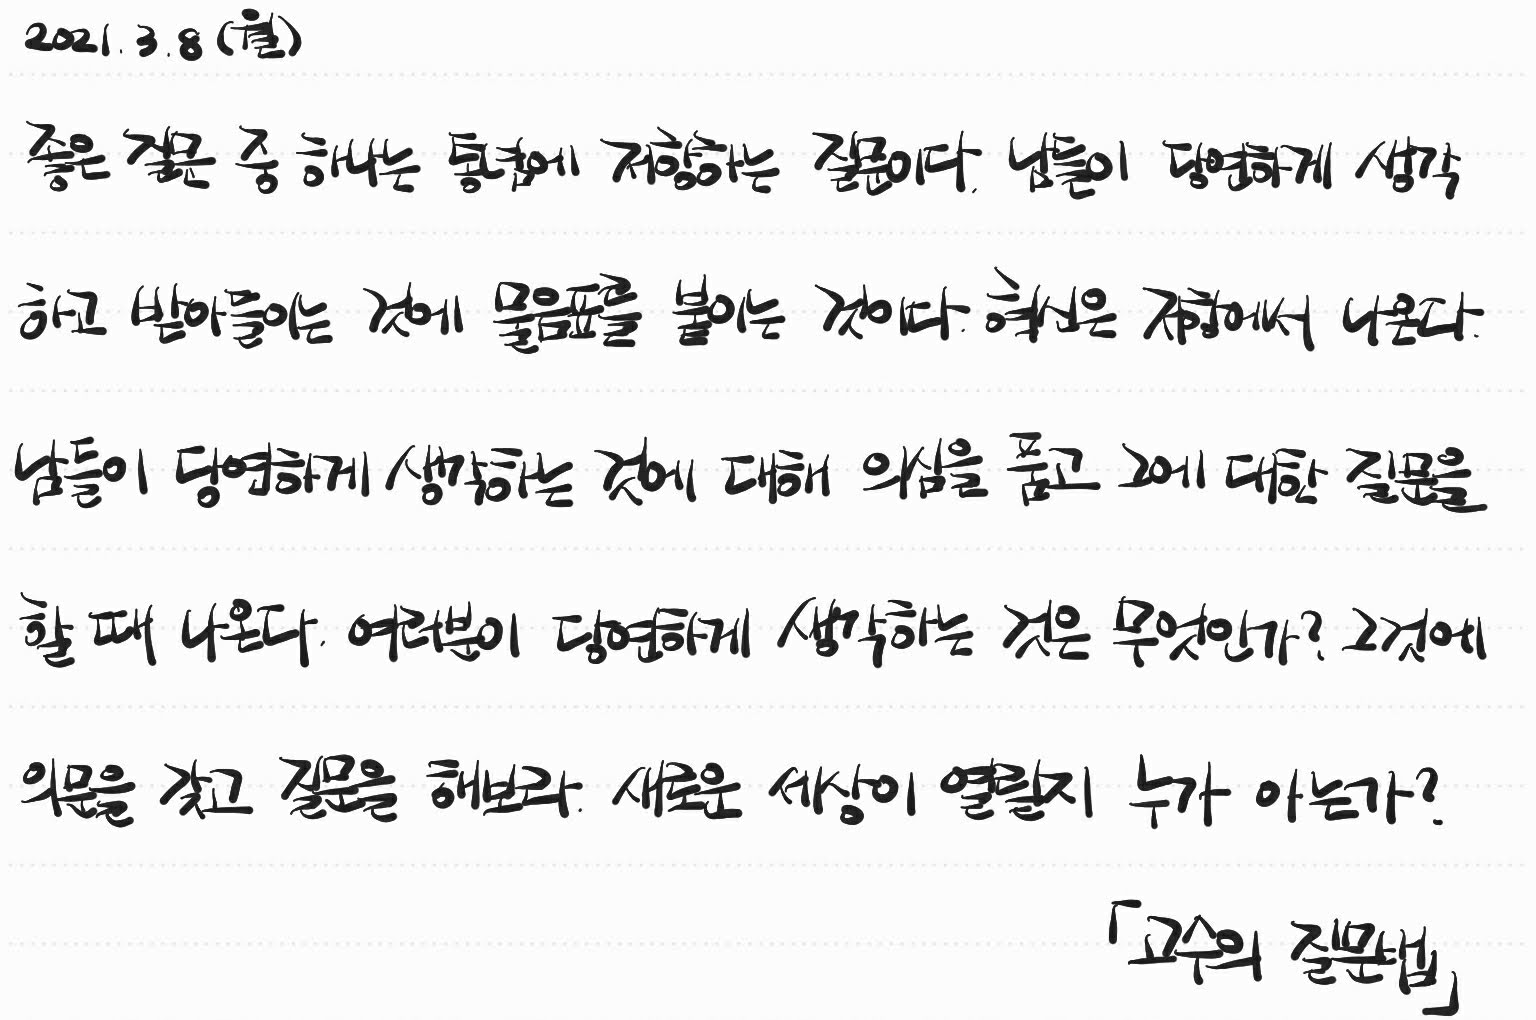 2021. 3. 8 (월)
좋은 질문 중 하나는 통념에 저항하는 질문이다. 남들이 당연하게 생각
하고 받아들이는 것에 물음표를 붙이는 것이다. 혁신은 저항에서 나온다.
남들이 당연하게 생각하는 것에 대해 의심을 품고 그에 대한 질문을
할 때 나온다. 여러분이 당연하게 생각하는 것은 무엇인가? 그것에
의문을 갖고 질문을 해보라. 새로운 세상이 열릴지 누가 아는가?
「고수의 질문법」